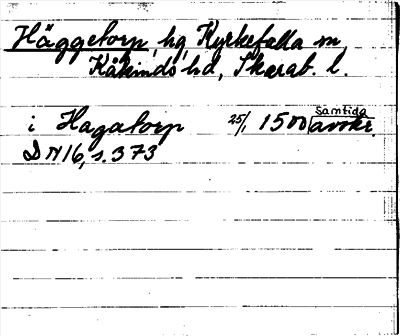 Häggetorp, hg, Kyrkefalla sn,
Kåkinds hd, Skarab. l.
i Hagatorp 25/1 1500 samtida avskr.
DN 16, s. 373